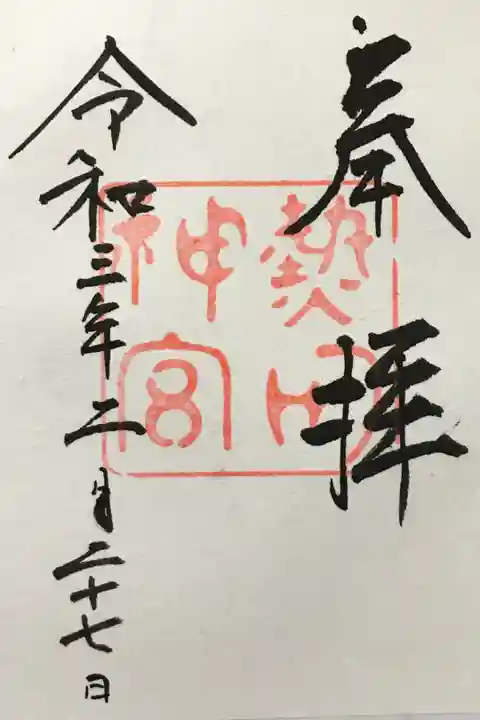 奉拝
熱田
神宮
令和三年二月二十七日